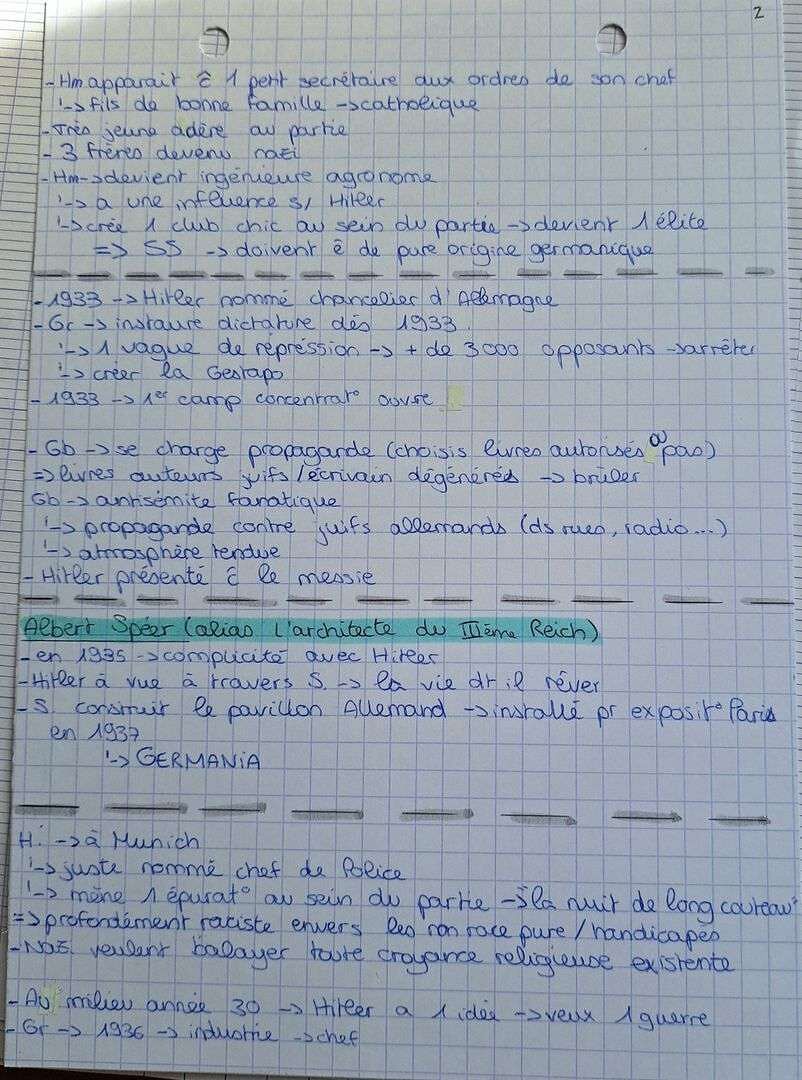 2
- Hm apparait ĉ 1 petit secrétaire aux ordres de son chef
↳ fils de bonne famille → catholique
- Très jeune adère au partie
- 3 frères devenu nazi
- Hm → devient ingénieure agronome
↳ a une influence s/ Hitler
↳ crée 1 club chic au sein du partie → devient 1 élite
=> SS → doivent ê de pure origine germanique
- 1933 → Hitler nommé chancelier d'Allemagne
- Gr → instaure dictature dès 1933.
↳ 1 vague de répréssion → + de 3000 opposants → arrêter
↳ créer la Gestapo
- 1933 → 1er camp concentrat° ouvre
- Gb → se charge propagande (choisis livres autorisés ou pas)
=> livres auteurs juifs / écrivain dégénérés → brûler
Gb → antisémite fanatique
↳ propagande contre juifs allemands (ds rues, radio...)
↳ atmosphère tendue
- Hitler présenté ĉ le messie
Albert Spéer (alias L'architecte du IIIème Reich)
- en 1935 → complicité avec Hitler
- Hitler à vue à travers S. → la vie dt il rêver
- S. construit le pavillon Allemand → installé pr exposit° Paris
en 1937
↳ GERMANiA
H. → à Munich
↳ juste nommé chef de Police
↳ mène 1 épurat° au sein du partie → la nuit de long couteau
=> profondément raciste envers les non race pure / handicapés
- Nazi veulent balayer toute croyance religieuse existente
- Au milieu année 30 → Hitler a 1 idée → veux 1 guerre
- Gr → 1936 → industrie → chef